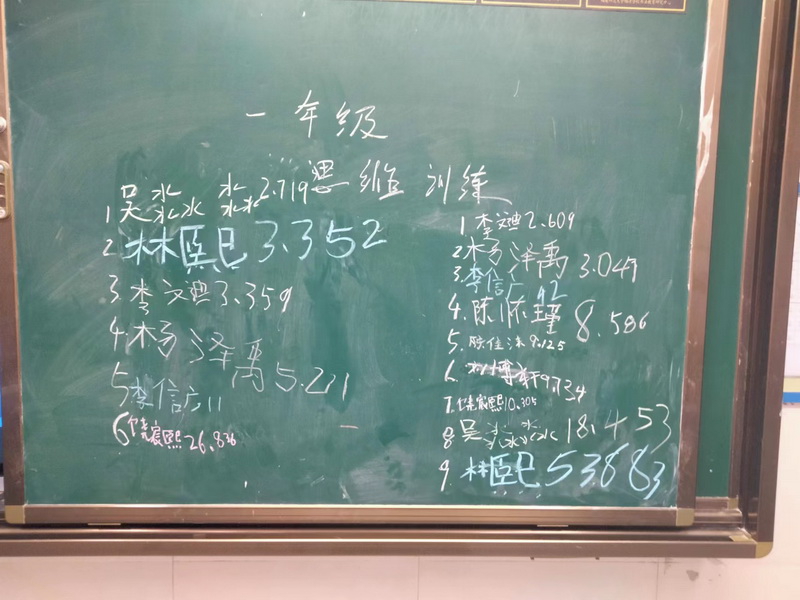 一年级
思维训练
1 吴淼淼 2.719
2 林熙 3.352
3 李文迪 3.359
4 杨泽禹 5.211
5 李信广 11
6 饶宸熙 26.836
1 李文迪 2.609
2 杨泽禹 3.049
3. 李信广
4. 陈依瑾 8.586
5. 9.125
6. 9.734
7. 饶宸熙 10.305
8 吴淼淼 18.453
9. 林熙 53.883